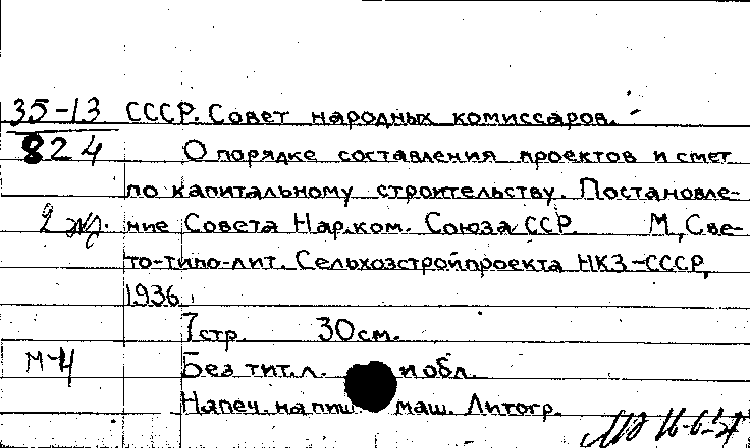 35-13 СССР. Совет народных комиссаров.
824 О порядке составления проектов и смет
по капитальному строительству. Постановле-
2 экз. ние Совета Нар.ком. Союза ССР. М., Све-
то-типо-лит. Сельхозстройпроекта НКЗ-СССР,
1936
7 стр. 30 см.
М-4 Без тит. л. и обл.
Напеч. на пиш. маш. Литогр.